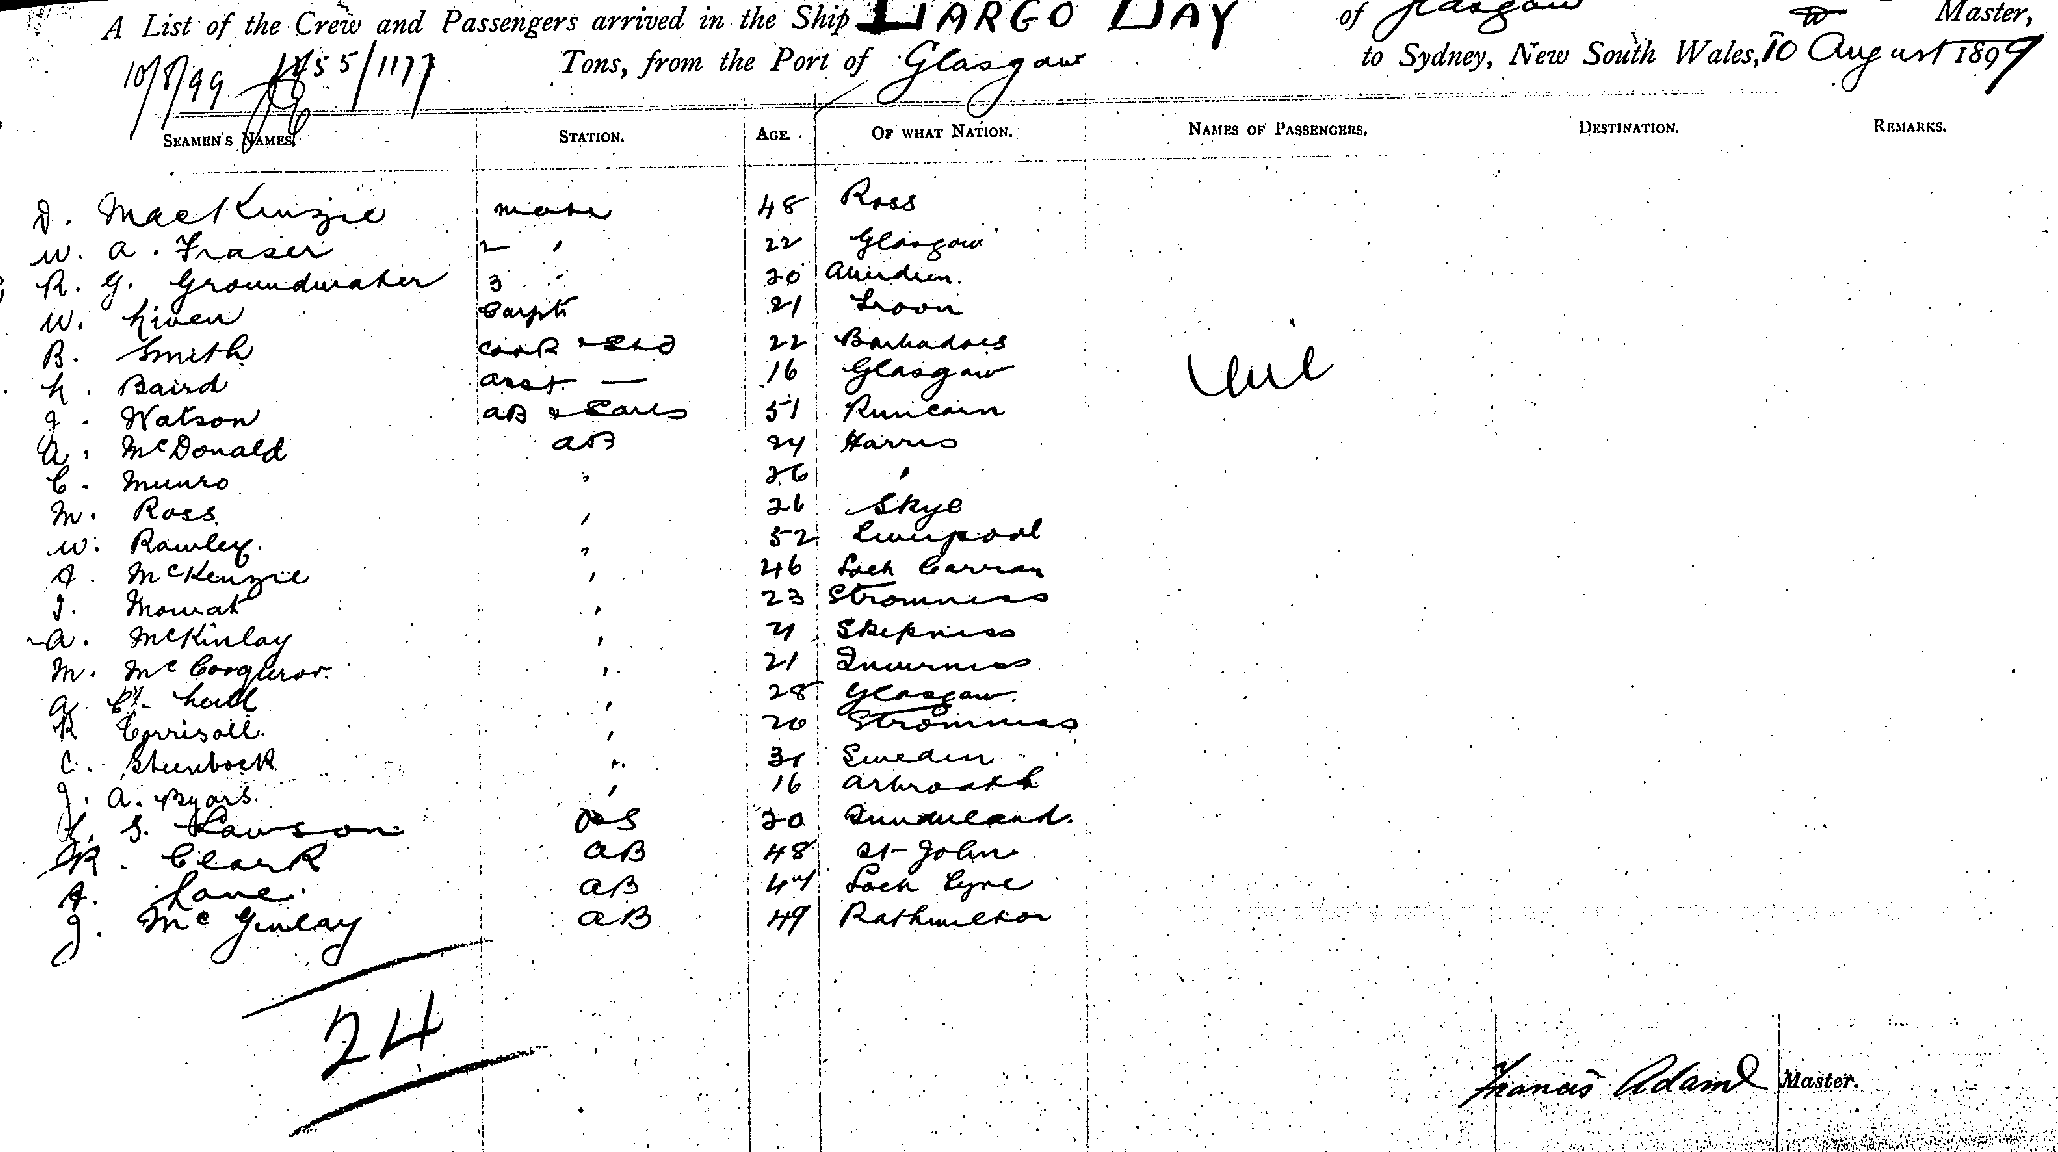 A List of the Crew and Passengers arrived in the Ship LARGO BAY of Glasgow Master,
10/8/99 1255/1177 Tons, from the Port of Glasgow to Sydney, New South Wales, 10 August 1899
SEAMEN'S NAMES. STATION. AGE. OF WHAT NATION. NAMES OF PASSENGERS. DESTINATION. REMARKS.
D. MacKenzie mate 48 Ross
W. A. Fraser 2 " 22 Glasgow
R. G. Groundwater 3 " 20 Aberdeen
W. Niven Carptr 21 Troon
B. Smith Cook & Std 22 Barbadoes
h. Baird asst — 16 Glasgow nil
J. Watson AB & Sails 51 Runcorn
A. McDonald AB 24 Harris
C. Munro " 26 "
M. Ross " 26 Skye
W. Rawley " 52 Liverpool
A. McKenzie " 46 Loch Carran
J. Mowat " 23 Stromness
A. McKinlay " 21 Skipness
M. McCorquror " 21 Inverness
A. 28 Glasgow
R " 20 Stromness
C. Steenbock " 31 Sweden
J. A. Byars " 16 Arbroath
S. Lawson OS 20 Sunderland
R. Clark AB 48 St John
A. Lane AB Loch Eyre
J. McGinlay AB 49 Rathmelton
24
Francis Adam Master.